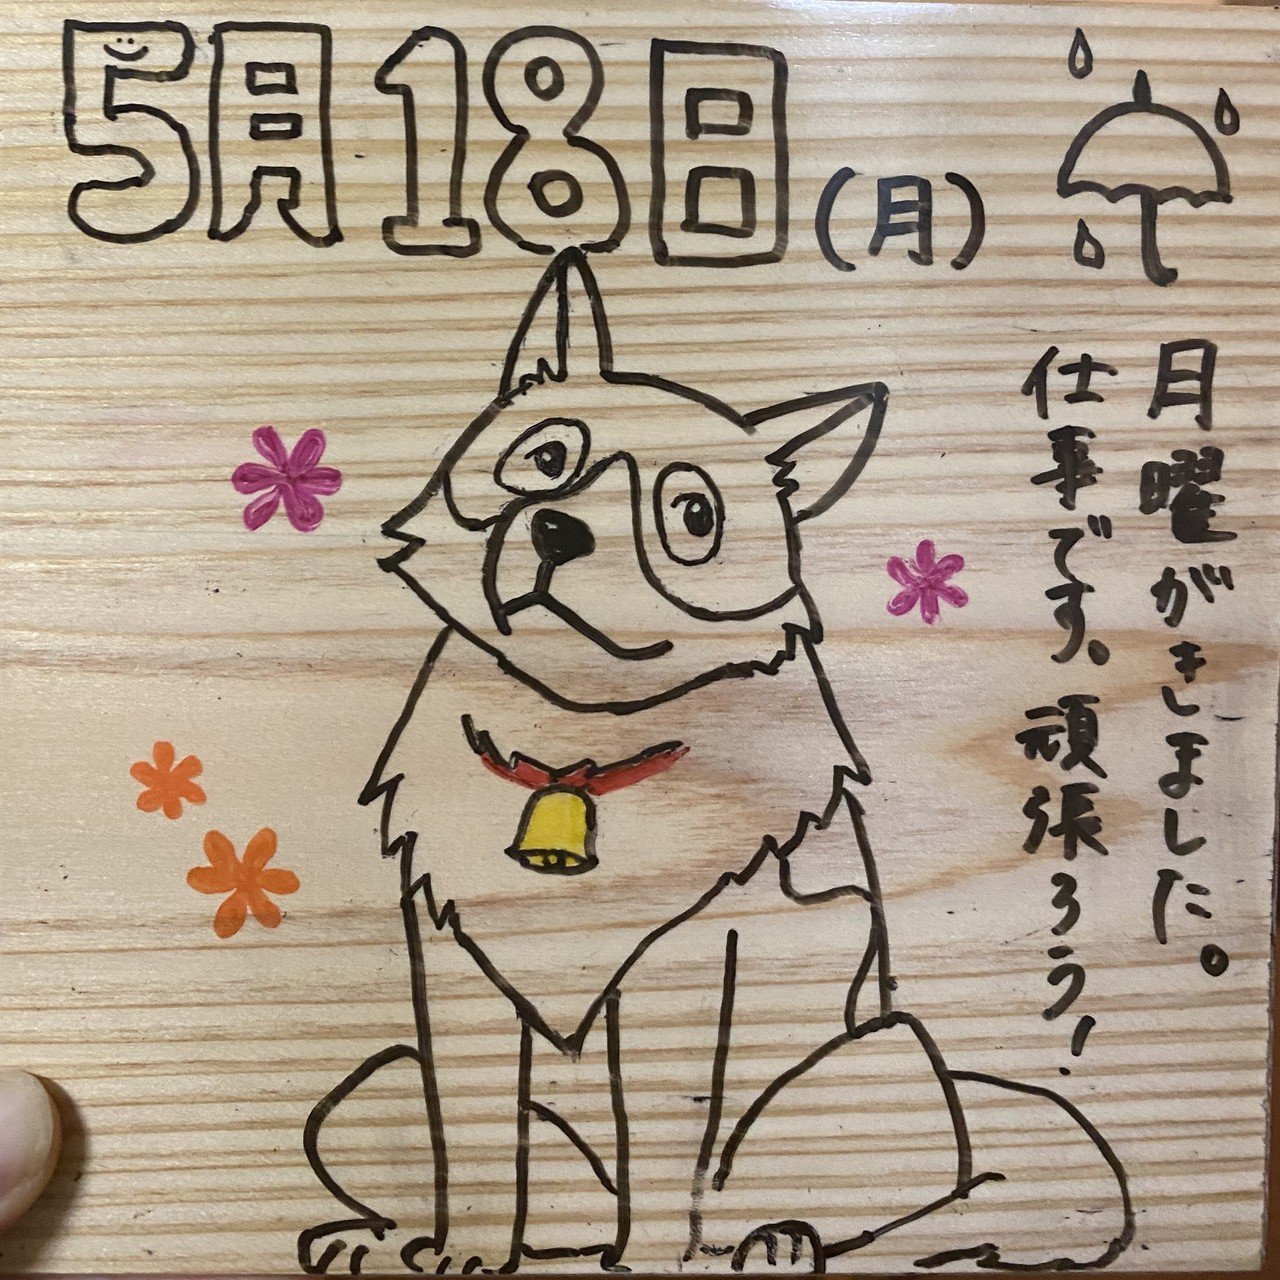 5月18日(月)
月曜がきました。
仕事です。頑張ろう!